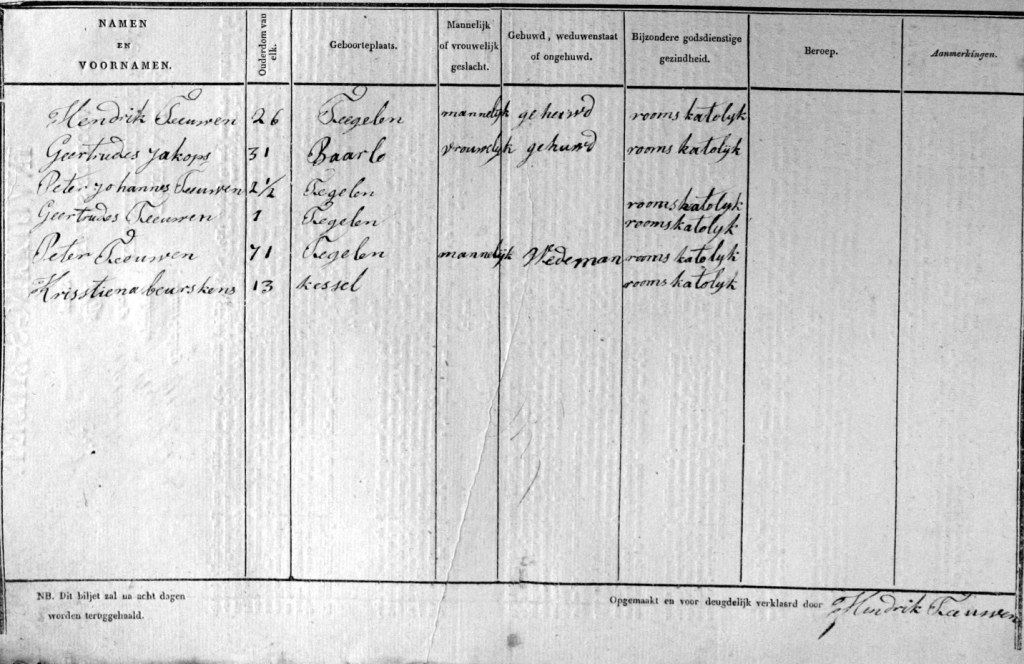 NAMEN EN VOORNAMEN. Ouderdom van elk. Geboorteplaats. Mannelijk of vrouwelijk geslacht. Gehuwd, weduwenstaat of ongehuwd. Bijzondere godsdienstige gezindheid. Beroep. Aanmerkingen.
Hendrik Teeuwen 26 Teegelen mannelyk gehuwd rooms katolyk
Geertrudes Jakops 31 Baarlo vrouwelyk gehuwd rooms katolyk
Peter Johannes Teeuwen 2 1/2 Tegelen rooms katolyk
Geertrudes Teeuwen 1 Tegelen rooms katolyk
Peter Teeuwen 71 Tegelen mannelyk Wedeman rooms katolyk
Krisstiena beurskens 13 kessel rooms katolyk
NB. Dit biljet zal na acht dagen
worden teruggehaald.
Opgemaakt en voor deugdelijk verklaard door Hendrik Teeuwen